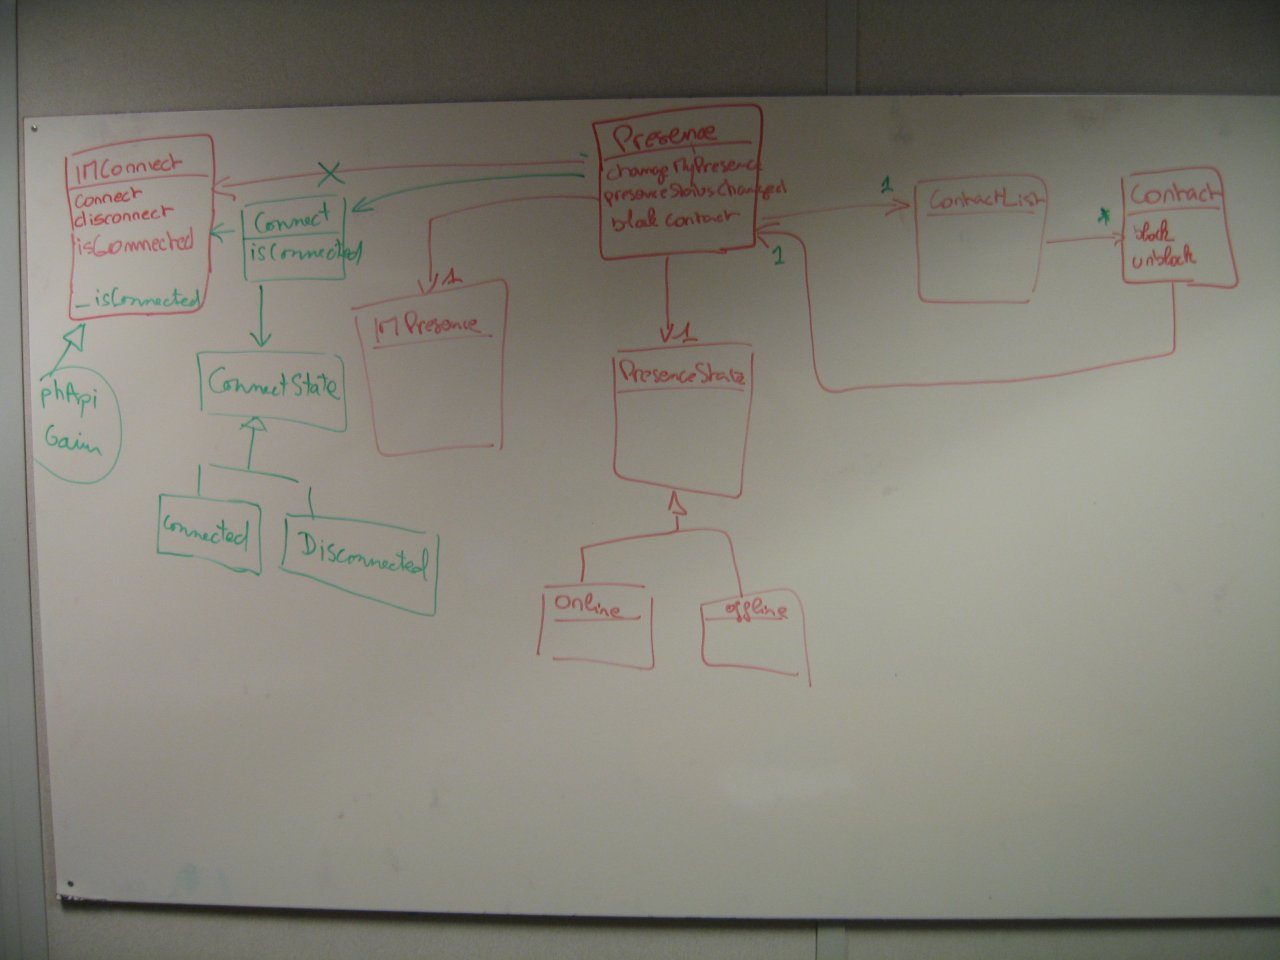 IMConnect
connect
disconnect
isConnected
_isConnected
phApi
Gaim
Connect
isConnected
ConnectState
Connected
Disconnected
X
1
IMPresence
Presence
changeMyPresence
presenceStatusChanged
block contact
1
PresenceState
Online
offline
1
ContactList
1
*
Contact
block
unblock